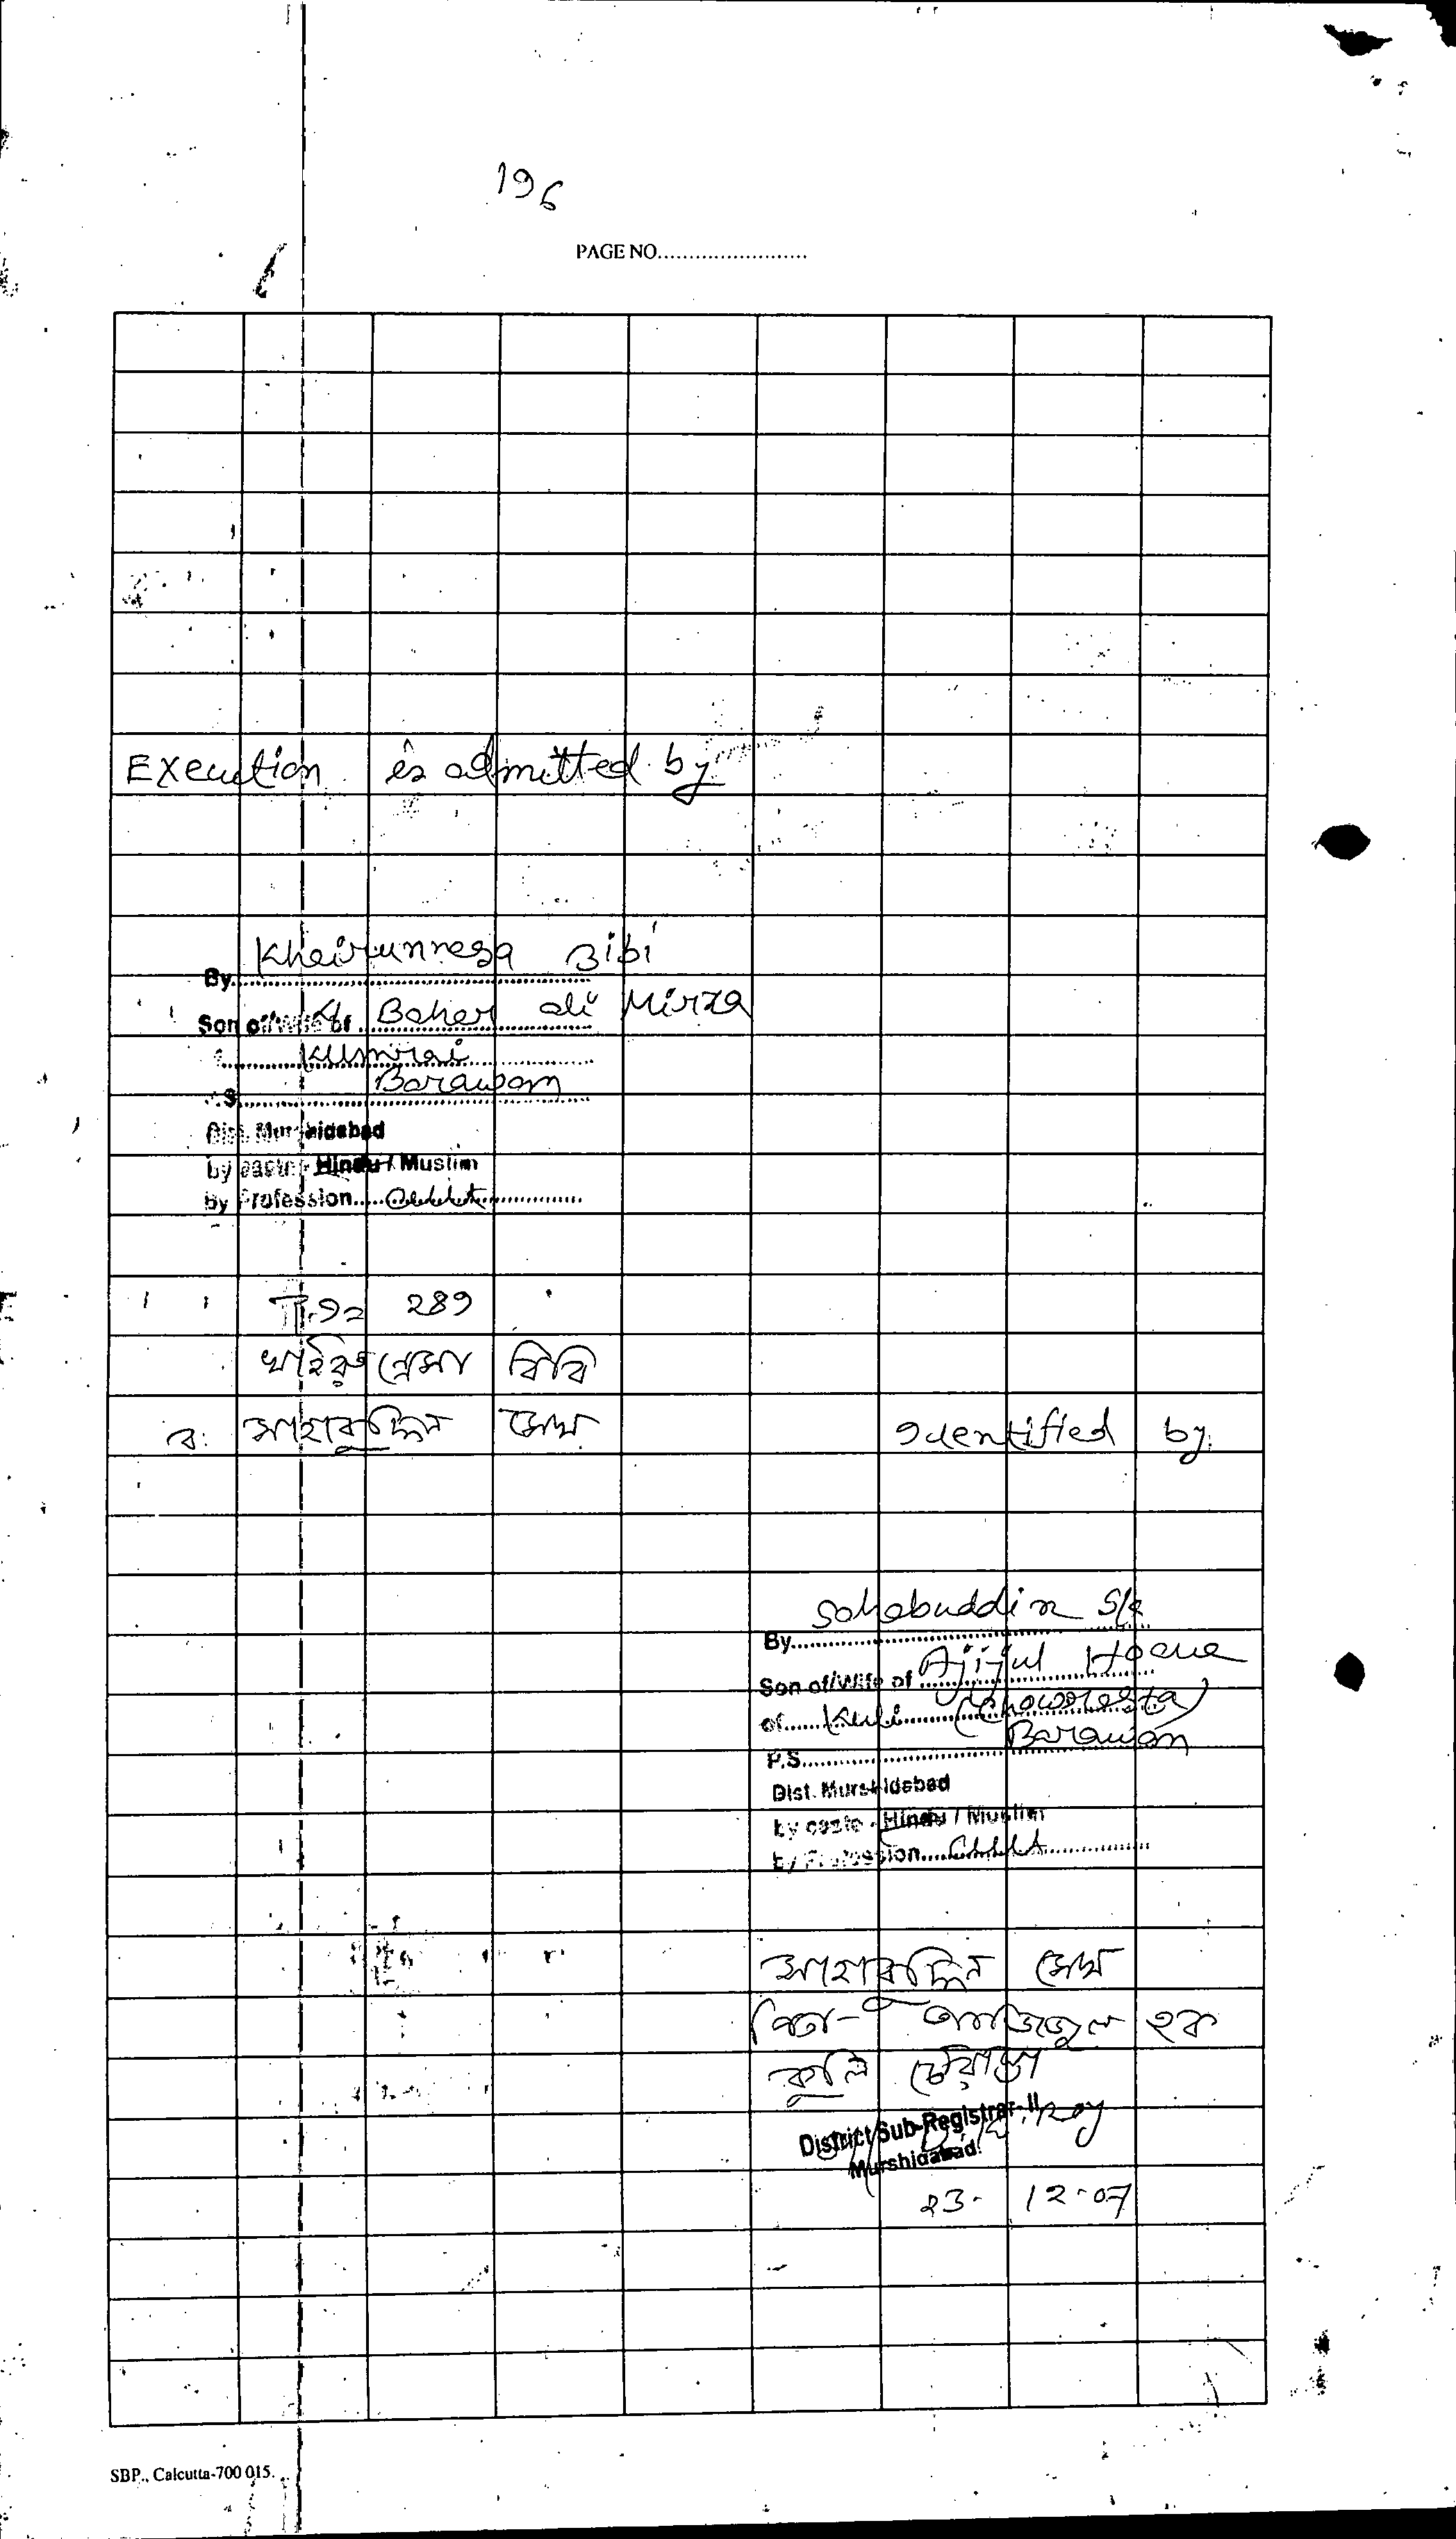 196
PAGE NO........................
Execution is admitted by
By Khairunnesa Bibi
Son of/Wife of Baher ali Mirza
Kumrai
P.S. Barawan
Dist. Murshidabad
by caste - Hindu / Muslim
By Profession.....
২৪১
খাইরুন্নেসা বিবি
ব: সাহাবুদ্দিন সেখ
Identified by.
By Sahabuddin Sk
Son of/Wife of Ajijul Hoque
of Kuli (Chowrasta)
P.S. Barawan
Dist. Murshidabad
by caste - Hindu / Muslim
by Profession....
সাহাবুদ্দিন সেখ
পিতা- আজিজুল হক
কুলি চৌরাস্তা
District Sub-Registrar-II Roy
Murshidabad.
23- 12-07
SBP., Calcutta-700 015.